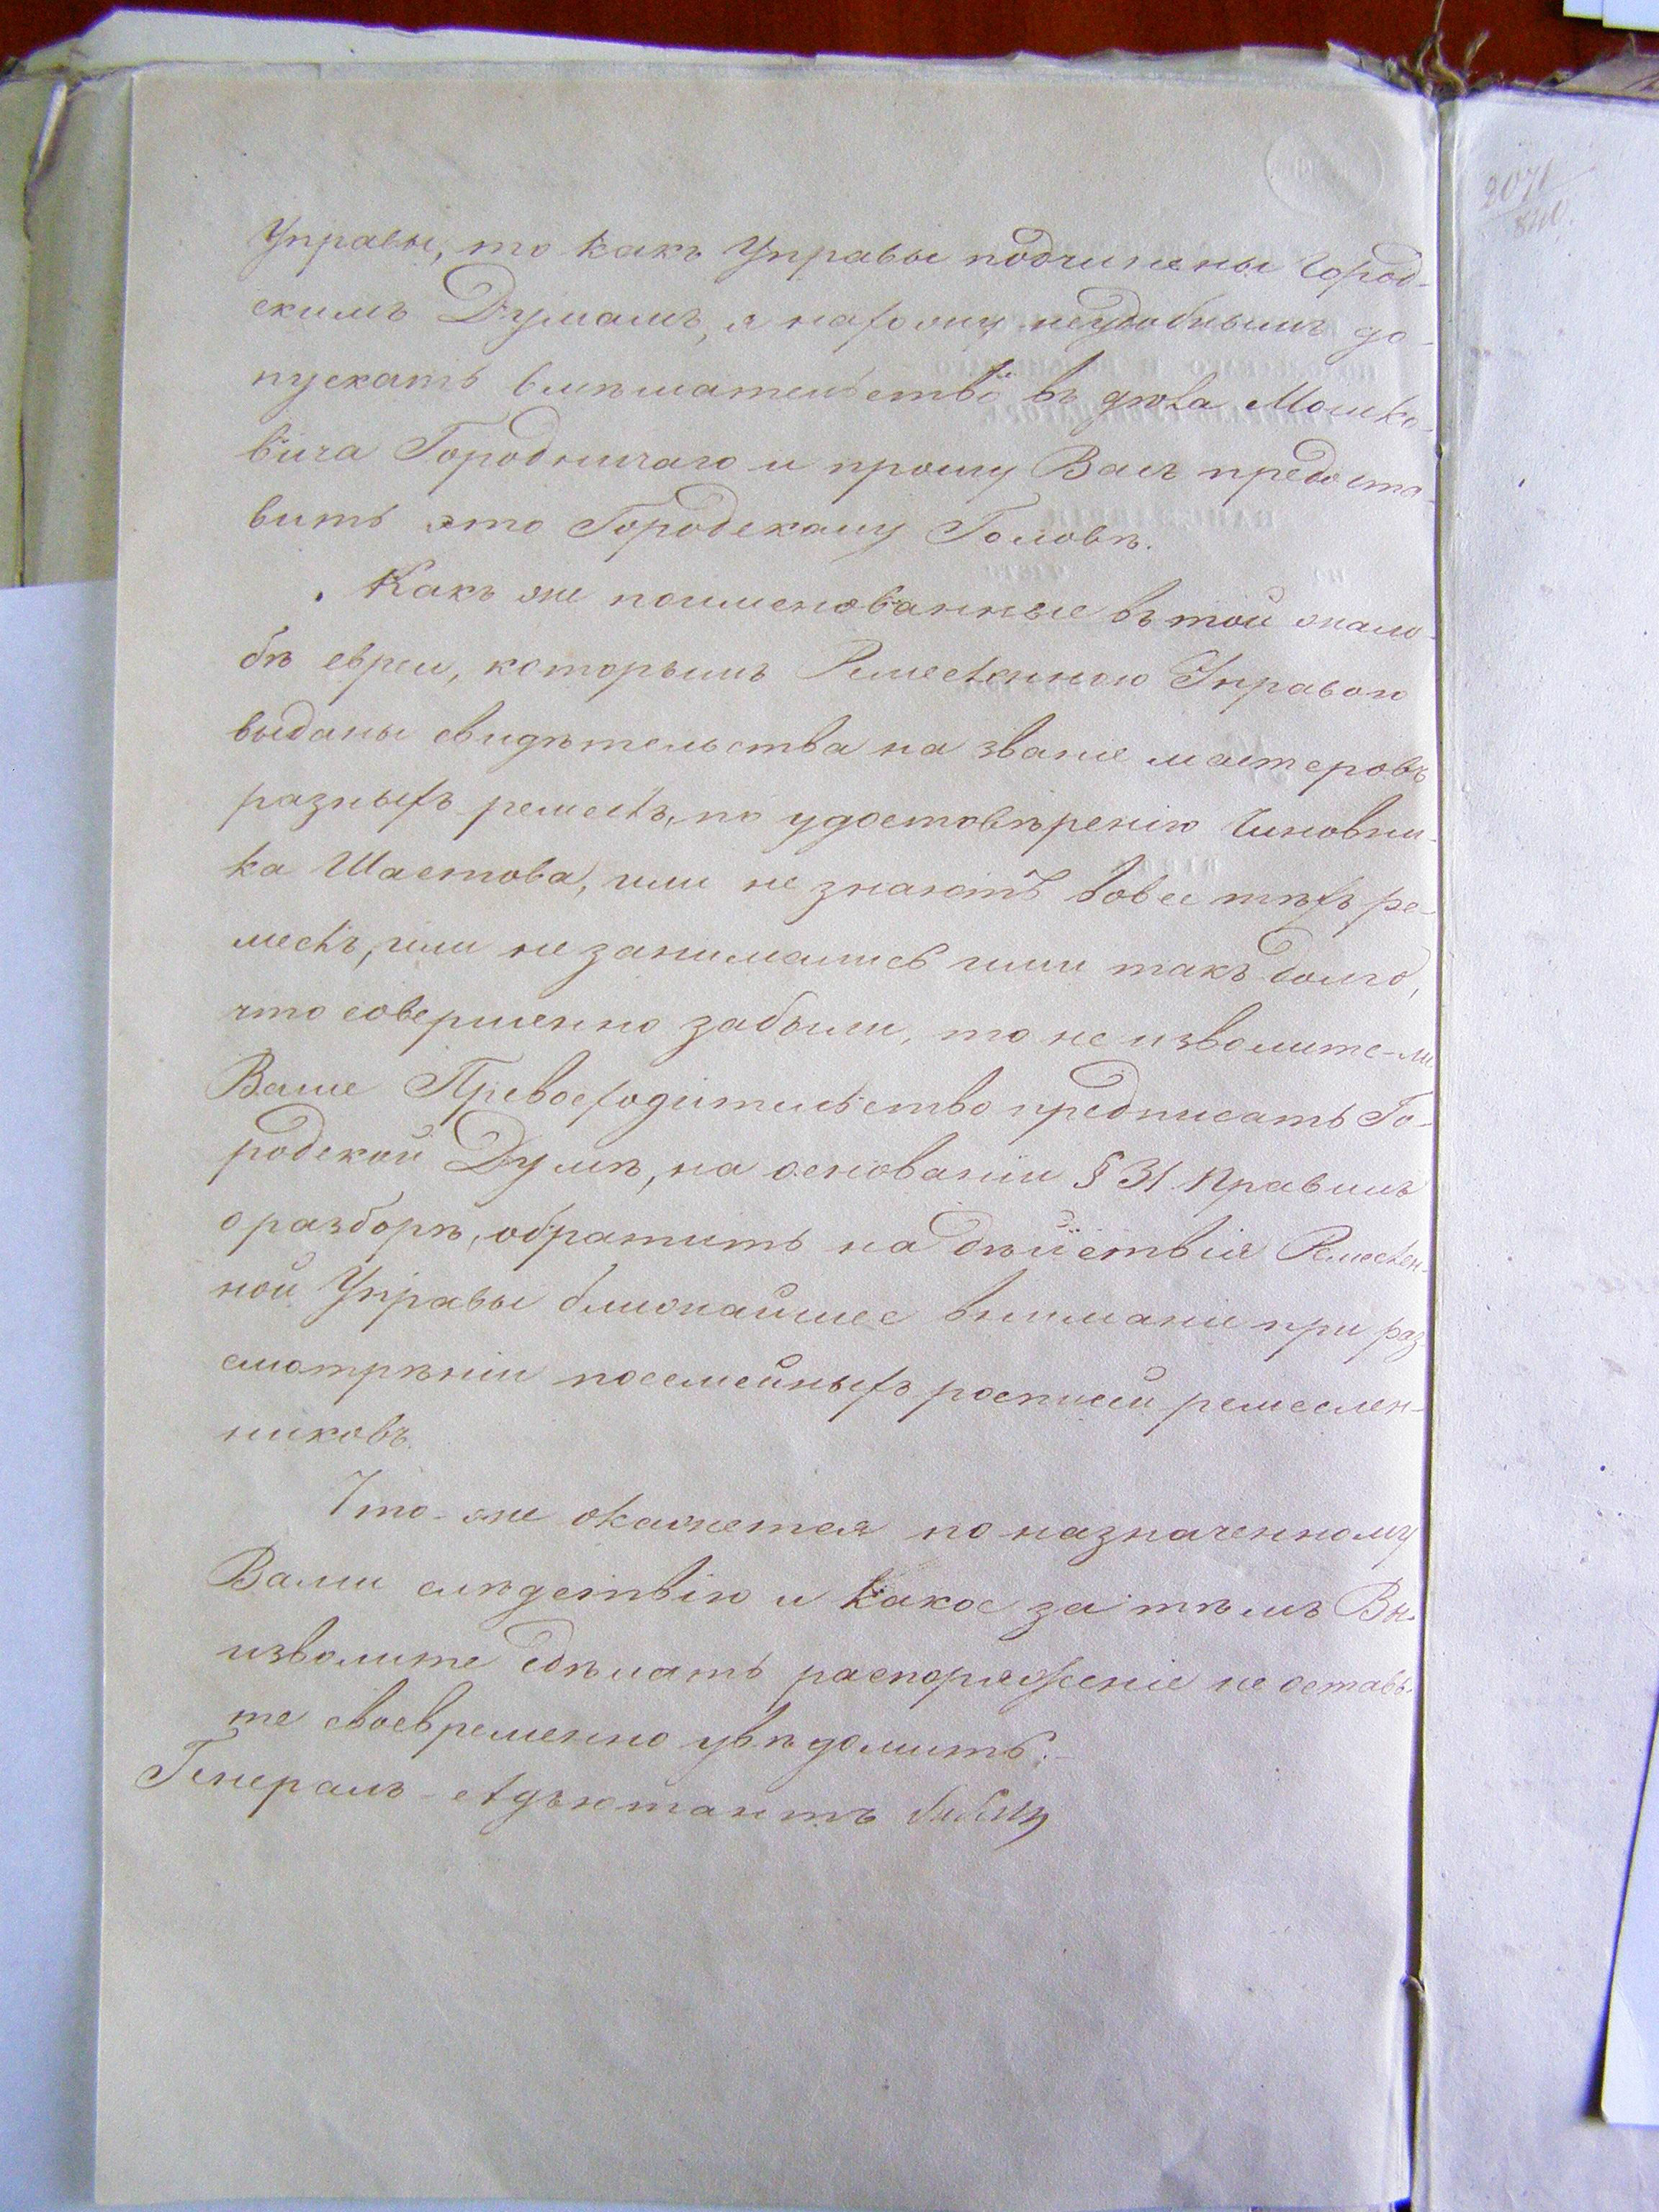 Управы, то какъ Управы подчинены Город-
скимъ Думамъ, я нахожу неудобнымъ до-
пускать вмѣшательство въ дѣла Мошко-
вича Городничаго и прошу Васъ предоста-
вить это Городскому Головѣ.
Какъ же поименованные въ той жало-
бѣ евреи, которымъ Ремесленною Управою
выданы свидѣтельства на званіе мастеровъ
разныхъ ремеслъ, по удостовѣренію Чиновни-
ка Шастова, или не знаютъ вовсе тѣхъ ре-
меслъ, или не занимались ими такъ долго,
что совершенно забыли, то не изволите-ли
Ваше Превосходительство предписать Го-
родской Думѣ, на основаніи § 31 Правилъ
о разборѣ, обратить на дѣйствія Ремеслен-
ной Управы ближайшее вниманіе при раз-
смотрѣніи посемейныхъ росписей ремеслен-
никовъ.
Что-же окажется по назначенному
Вами слѣдствію и какое за тѣмъ Вы
изволите сдѣлать распоряженіе не оставь-
те своевременно увѣдомить.
Генералъ-Адъютантъ
2071